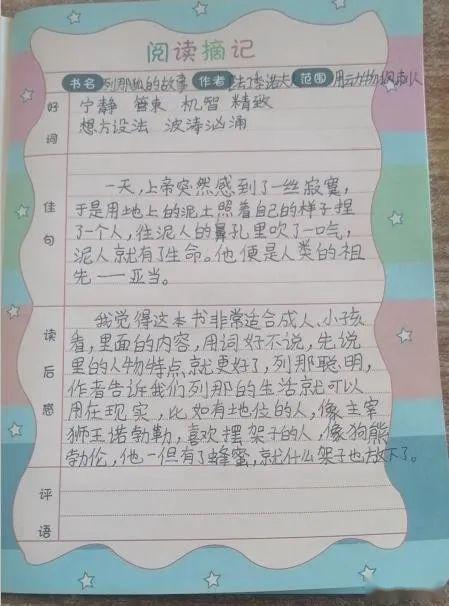 阅读摘记
书名 列那狐的故事 作者 季诺夫 范围 用动物讽刺人
好词
宁静 管束 机智 精致
想方设法 波涛汹涌
佳句
一天,上帝突然感到了一丝寂寞,
于是用地上的泥土照着自己的样子捏
了一个人,往泥人的鼻孔里吹了一口气,
泥人就有了生命。他便是人类的祖
先——亚当。
读后感
我觉得这本书非常适合成人、小孩
看,里面的内容,用词好不说,先说
里的人物特点,就更好了,列那聪明,
作者告诉我们列那的生活就可以
用在现实,比如有地位的人,像主宰
狮王诺勃勒,喜欢摆架子的人,像狗熊
勃伦,他一但有了蜂蜜,就什么架子也放下了。
评语